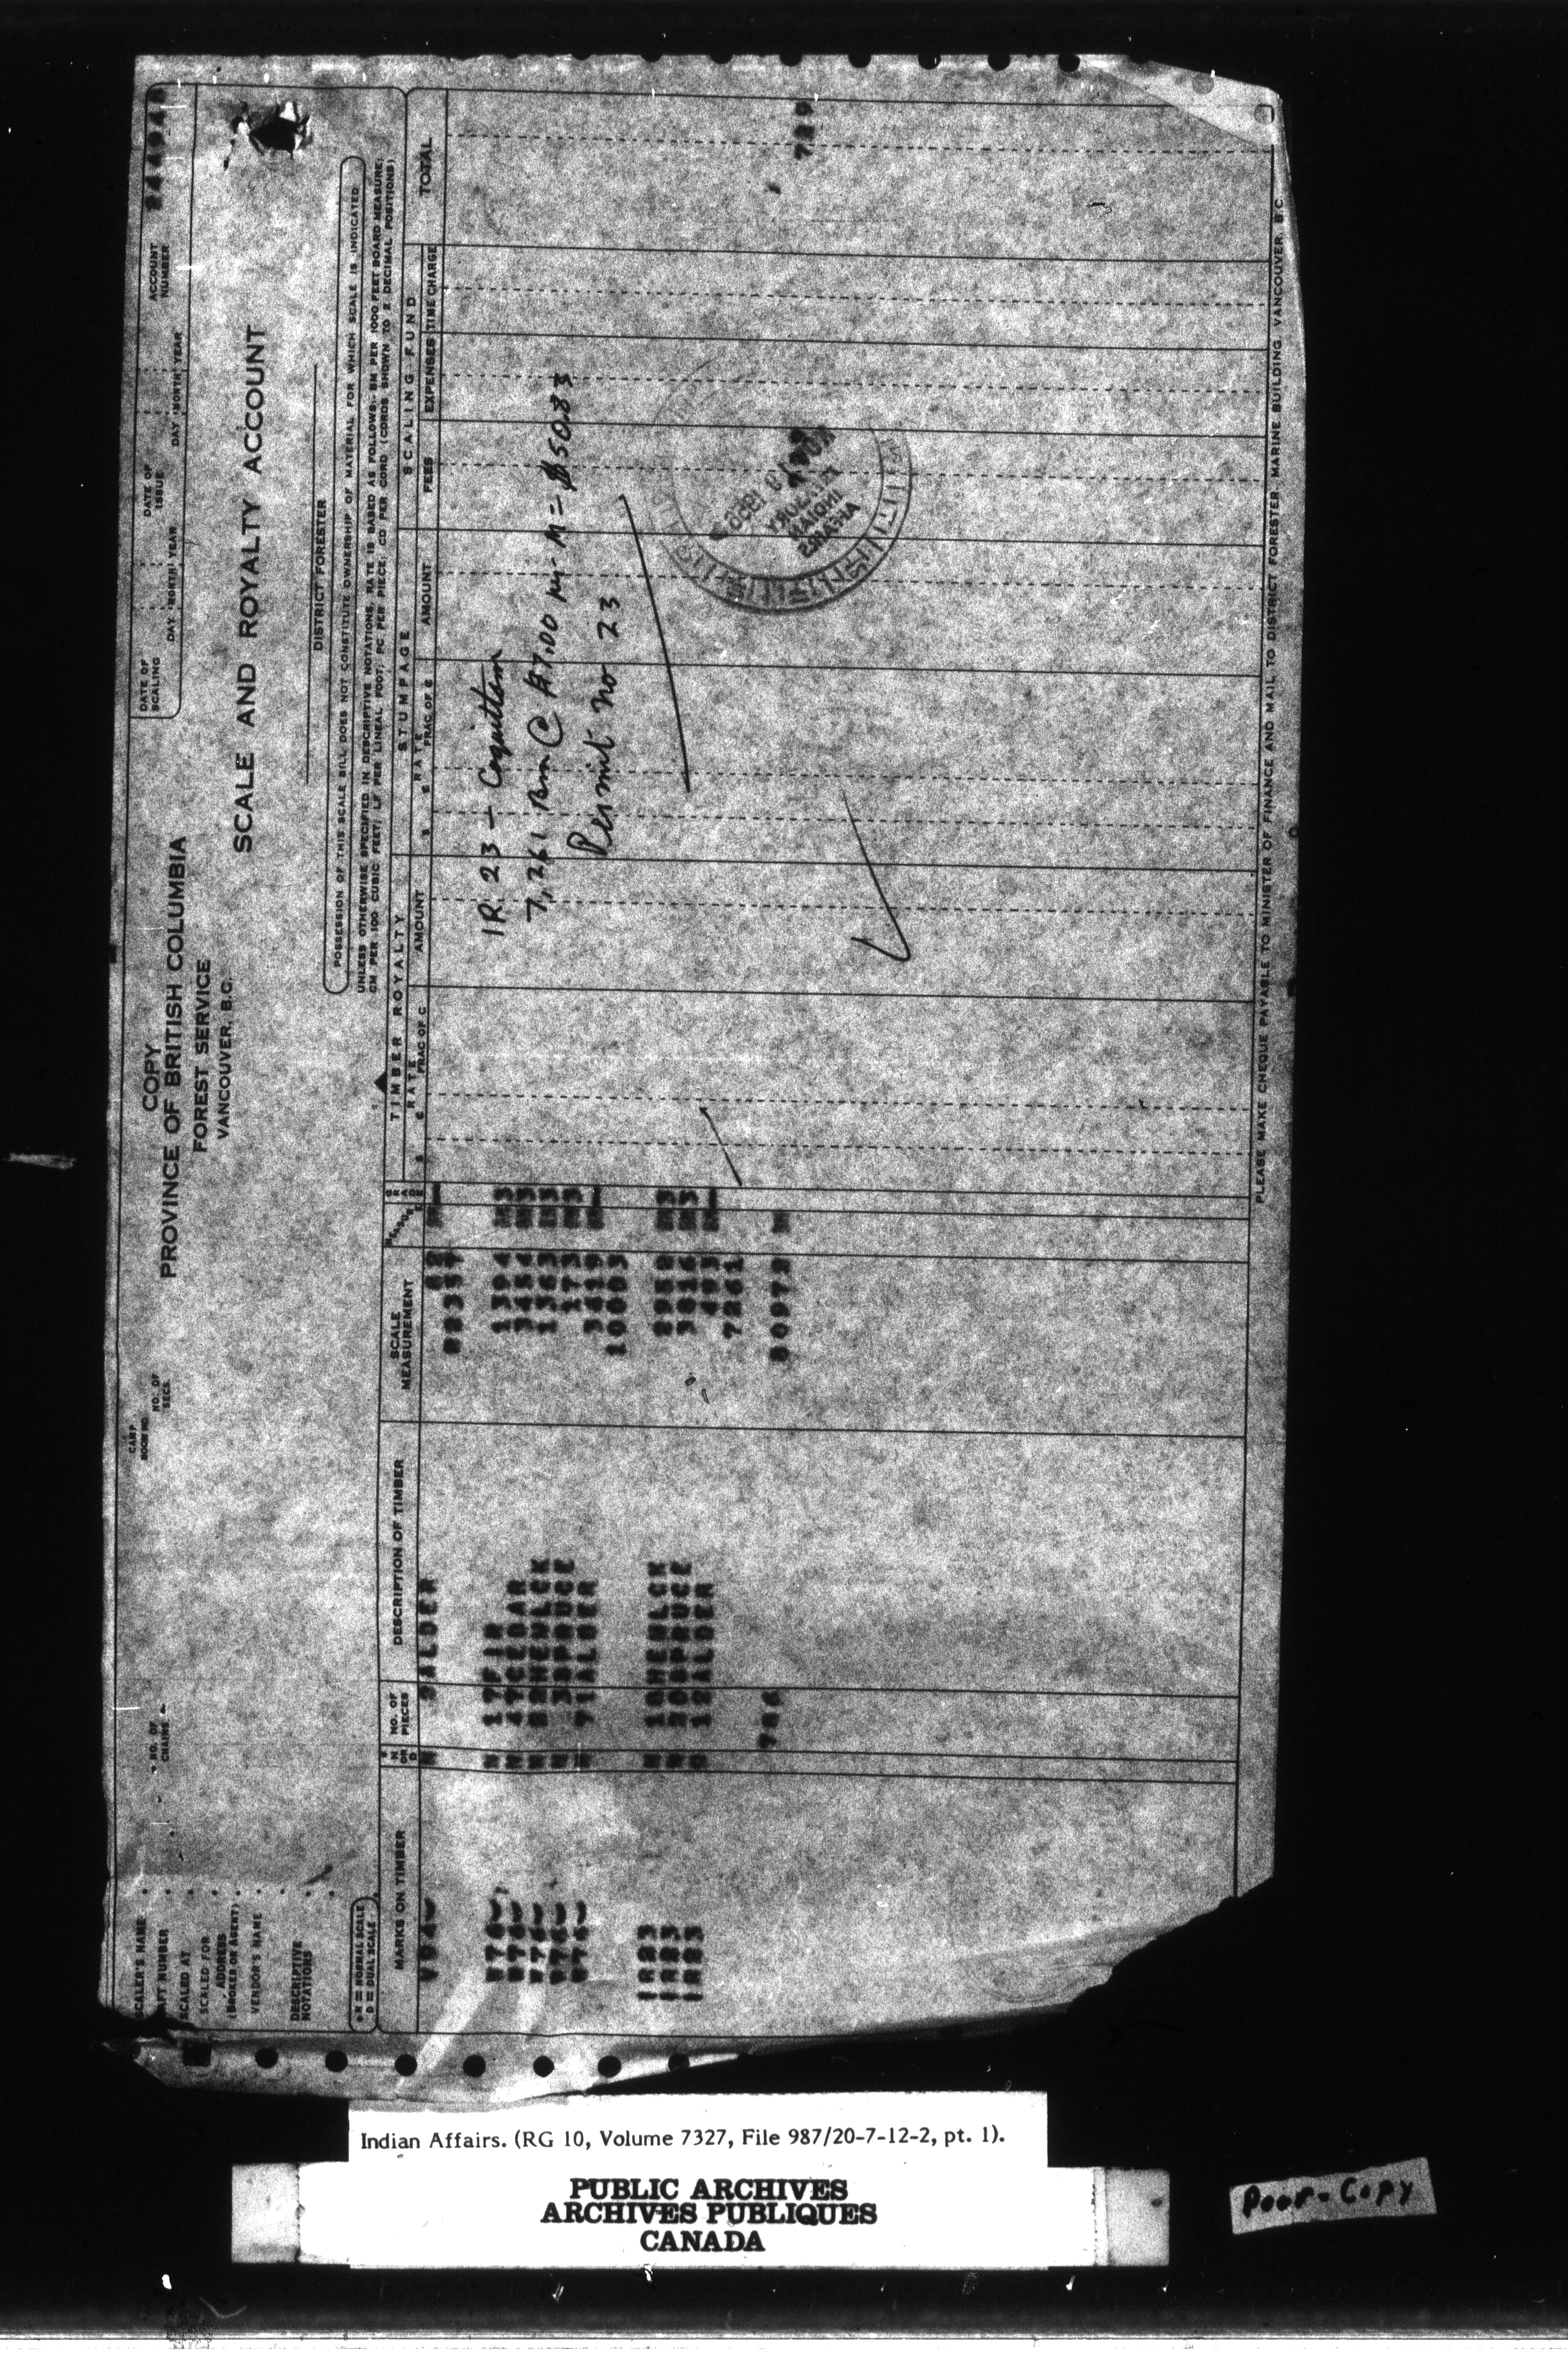 COPY
PROVINCE OF BRITISH COLUMBIA
FOREST SERVICE
VANCOUVER, B.C.
SCALE AND ROYALTY ACCOUNT
DISTRICT FORESTER
SCALER'S NAME
AFT NUMBER
SCALED AT
SCALED FOR
ADDRESS
(BROKER OR AGENT)
VENDOR'S NAME
DESCRIPTIVE
NOTATIONS
N = NORMAL SCALE
D = DUAL SCALE
NO. OF
CHAINS
CAMP
BOOM NO.
NO. OF
SECS.
DATE OF
SCALING
DAY MONTH YEAR
DATE OF
ISSUE
DAY MONTH YEAR
ACCOUNT
NUMBER
POSSESSION OF THIS SCALE BILL DOES NOT CONSTITUTE OWNERSHIP OF MATERIAL FOR WHICH SCALE IS INDICATED
UNLESS OTHERWISE SPECIFIED IN DESCRIPTIVE NOTATIONS, RATE IS BASED AS FOLLOWS:- BM PER 1000 FEET BOARD MEASURE;
CM PER 100 CUBIC FEET; LF PER LINEAL FOOT; PC PER PIECE; CD PER CORD (CORDS SHOWN TO 2 DECIMAL POSITIONS)
MARKS ON TIMBER
N OR D
NO. OF PIECES
DESCRIPTION OF TIMBER
SCALE MEASUREMENT
GRADE
TIMBER ROYALTY
RATE
$ C FRAC OF C
AMOUNT
STUMPAGE
RATE
$ C FRAC OF C
AMOUNT
SCALING FUND
FEES
EXPENSES
TIME CHARGE
TOTAL
ALDER
17 FIR 1394
47 CEDAR 3454
HEMLCK 1563
3 SPRUCE 173
71 ALDER 3419
10003
IR23 HEMLCK 2952
IR23 SPRUCE 3816
IR23 12 ALDER 493
7261
IR. 23 - Coquitlam
7,261 Bm @ $7.00 per M = $50.83
Permit no 23
INDIAN
AFFAIRS
PLEASE MAKE CHEQUE PAYABLE TO MINISTER OF FINANCE AND MAIL TO DISTRICT FORESTER, MARINE BUILDING, VANCOUVER, B.C.
Indian Affairs. (RG 10, Volume 7327, File 987/20-7-12-2, pt. 1).
PUBLIC ARCHIVES
ARCHIVES PUBLIQUES
CANADA
Poor-Copy